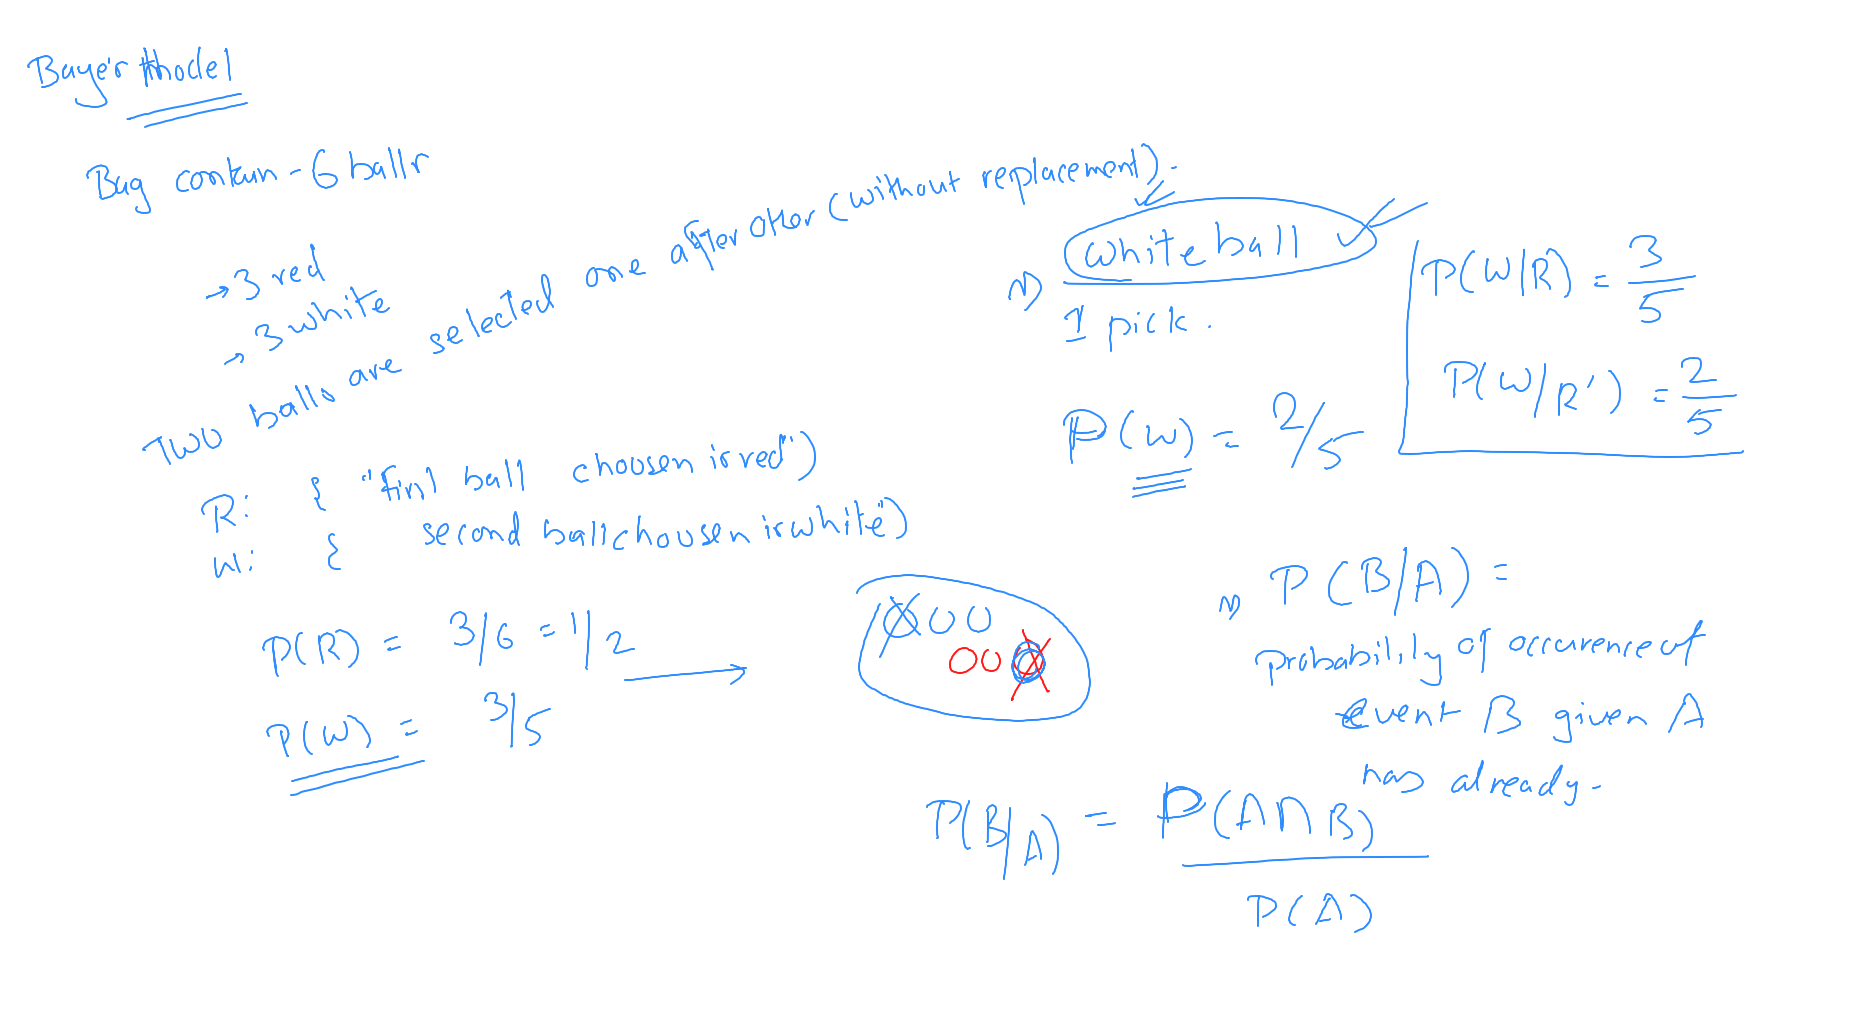 Baye's Model
Bag contain - 6 balls
→ 3 red
→ 3 white
Two balls are selected one after other (without replacement).
R: { "first ball choosen is red")
W: { second ball chousen is white")
P(R) = 3/6 = 1/2
P(W) = 3/5
White ball
1 pick.
P(W) = 2/5
P(W/R) = 3/5
P(W/R') = 2/5
P(B/A) =
probability of occurence of
event B given A
has already-
P(B/A) = P(A∩B)
P(A)